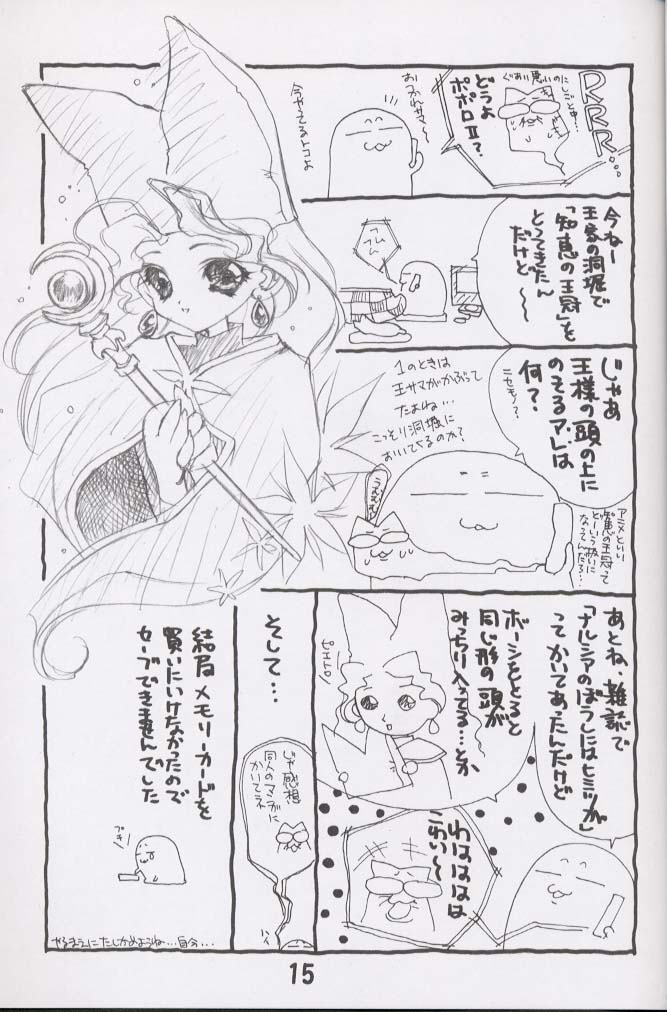 RRR…
ぐあい悪いのにしごと中…
どうよ
ポポロⅡ？
おつかれサマ〜
今やってるトコよ
今ねー
王家の洞堀で
「知恵の王冠」を
とってきたん
だけど〜〜
ふんふん
じゃあ
王様の頭の上に
のってるアレは
何？
ニセモノ？
1のときは
王サマがかぶって
たよね…
こっそり洞堀に
おいてくるのか？
うむむむ
アニメといい
知恵の王冠って
どーいう扱いに
なってんだろ…
あとね、雑誌で
「ナルシアのぼうしにはヒミツが」
ってかいてあったんだけど
ボーシをとると
同じ形の頭が
みっちり入ってる…とか
ピエトロ
わはははは
こわい〜
そして…
じゃ感想
同人のマンガに
かいてネ
ハイ
結局メモリーカードを
買いにいけなかったので
セーブできませんでした
プキー
やるまえにたしかめようね…自分…
15